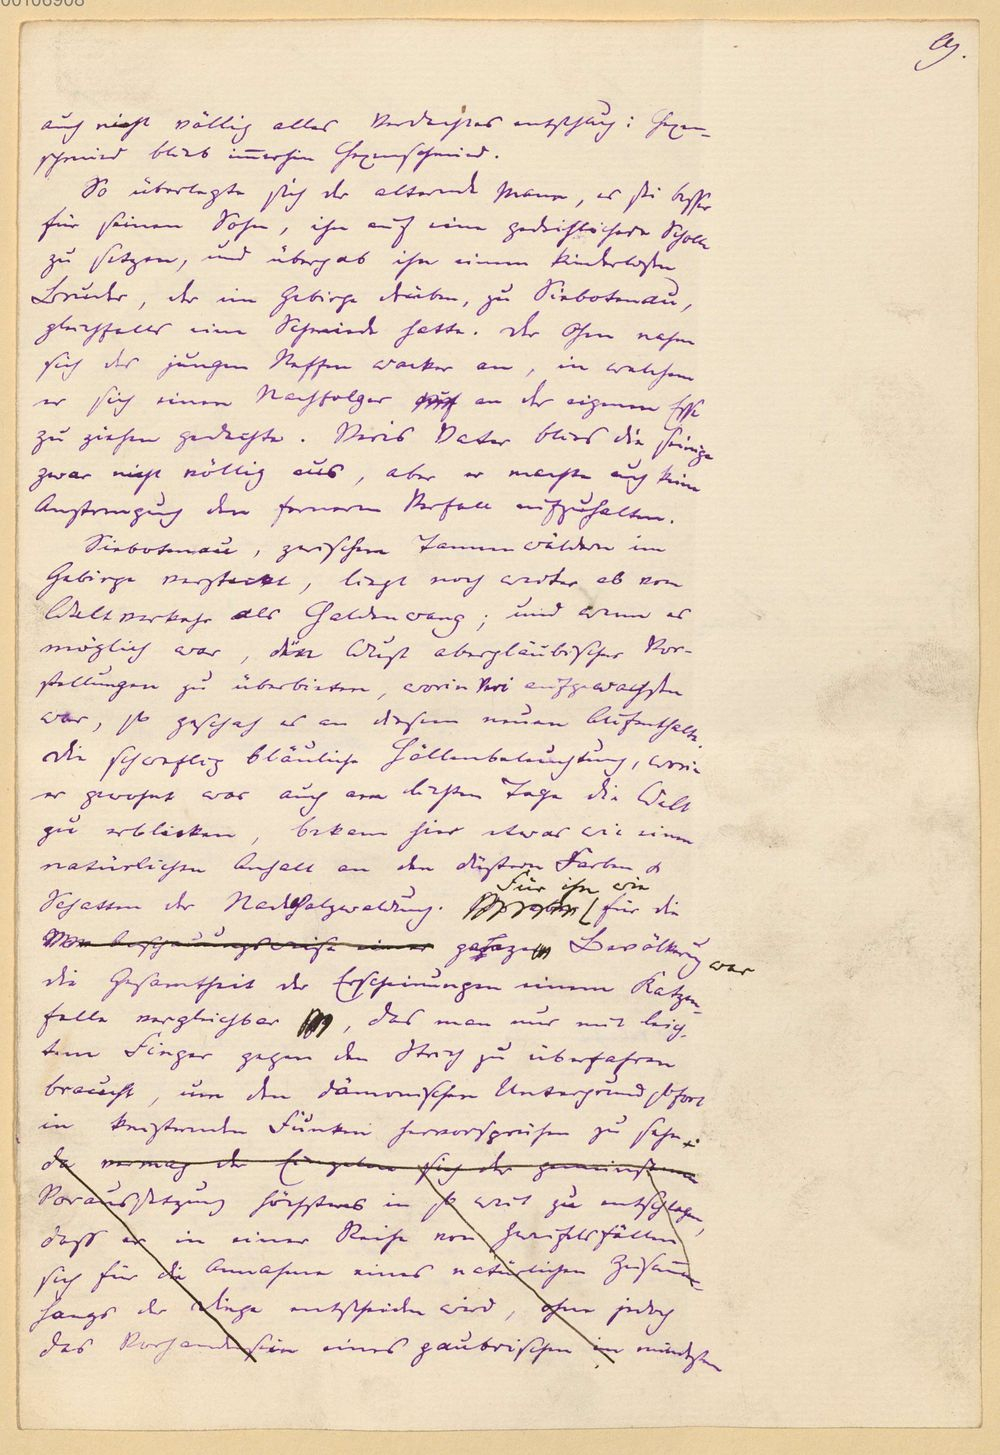 00106908
9.
auch nicht völlig alles Verdachtes entschlug: Hexen-
schmied blieb immerhin Hexenschmied.
So überlegte sich der alternde Mann, es sei besser
für seinen Sohn, ihn auf eine gedeihlichere Scholle
zu setzen, und übergab ihn einem kinderlosen
Bruder, der im Gebirge drüben, zu Siebotenau,
gleichfalls eine Schmiede hatte. Der Ohm nahm
sich des jungen Neffen wacker an, in welchem
er sich einen Nachfolger auf an der eigenen Esse
zu ziehen gedachte. Veris Vater blies die seinige
zwar nicht völlig aus, aber er machte auch keine
Anstrengung den ferneren Verfall aufzuhalten.
Siebotenau, zwischen Tannenwäldern im
Gebirge versteckt, liegt noch weiter ab vom
Weltverkehr als Haldenwang; und wenn es
möglich war, den Wust abergläubischer Vor-
stellungen zu überbieten, worin Veri aufgewachsen
war, so geschah es an diesem neuen Aufenthalte.
Die schweflig bläuliche Höllenbeleuchtung, worin
er gewohnt war auch am lichten Tage die Welt
zu erblicken, bekam hier etwas wie einen
natürlichen Anhalt an den düstern Farben &
Schatten der Nadelholzwaldung.
Für ihn wie
für die
beschauungsweise einer ganzen Bevölkerung war
die Gesamtheit der Erscheinungen einem Katzen-
felle vergleichbar, das man nur mit leich-
tem Finger gegen den Strich zu überfahren
braucht, um den dämonischen Untergrund sofort
in knisternden Funken hervorsprühen zu sehn.
da vermag der Einzelne sich der gemeinsamen
Voraussetzung höchstens in so weit zu entschlagen,
dass er in einer Reihe von Zweifelsfällen
sich für die Annahme eines natürlichen Zusammen-
hangs der Dinge entscheiden wird, ohne jedoch
das Vorhandensein eines zaubrischen im mindesten